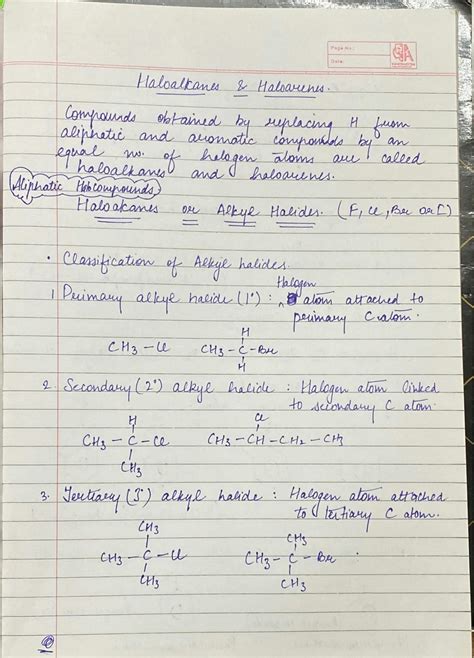 Page No.:
Date:
Haloalkanes & Haloarenes.
Compounds obtained by replacing H from
aliphatic and aromatic compounds by an
equal no. of halogen atoms are called
haloalkanes and haloarenes.
Aliphatic compounds
Haloalkanes or Alkyl Halides. (F, Cl, Br or I)
• Classification of Alkyl halides.
1 Primary alkyl halide (1°) : Halogen atom attached to
primary C atom.
H
CH3 – Cl CH3 – C – Br
H
2. Secondary (2°) alkyl halide : Halogen atom linked
to secondary C atom.
H Cl
CH3 – C – Cl CH3 – CH – CH2 – CH3
CH3
3. Tertiary (3°) alkyl halide : Halogen atom attached
to tertiary C atom.
CH3 CH3
CH3 – C – Cl CH3 – C – Br
CH3 CH3